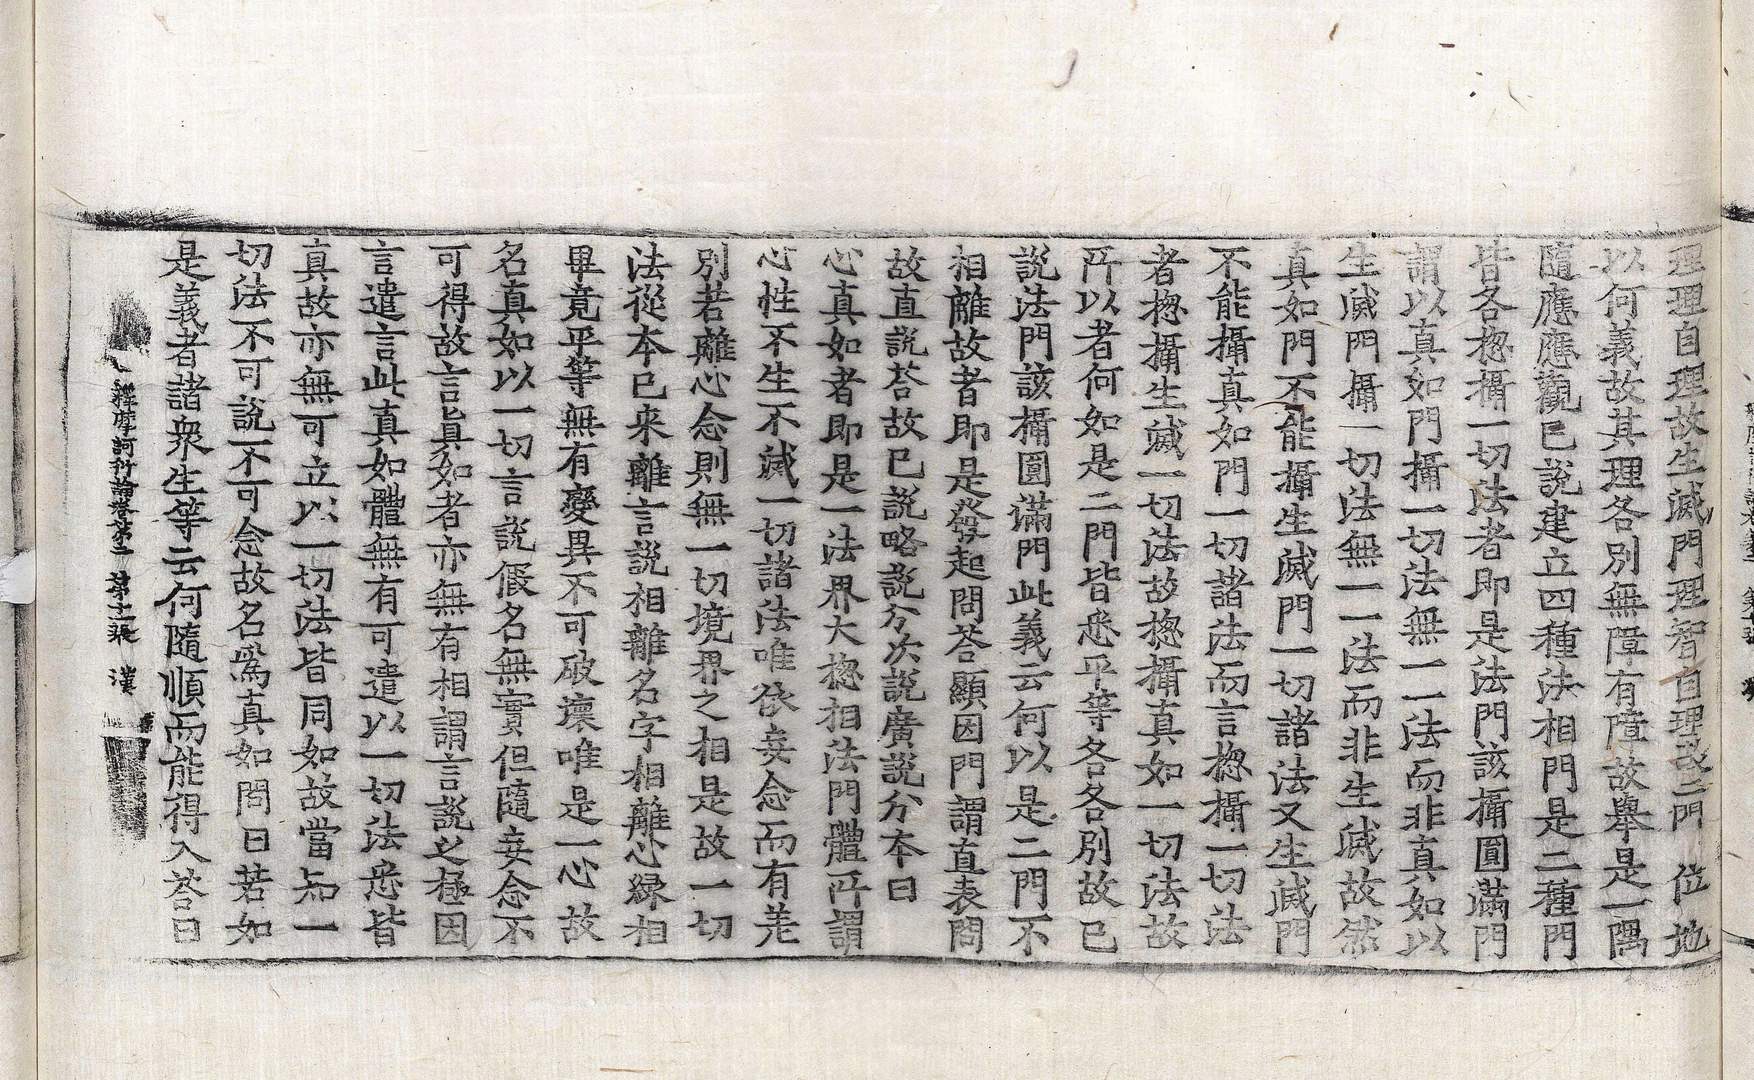 理理自理故生滅門理智自理故二門位地
以何義故其理各別無障有障故舉是一隅
隨應應觀已說建立四種法相門是二種門
皆各揔攝一切法者即是法門該攝圓滿門
謂以真如門攝一切法無一一法而非真如以
生滅門攝一切法無一一法而非生滅故然
真如門不能攝生滅門一切諸法又生滅門
不能攝真如門一切諸法而言揔攝一切法
者揔攝生滅一切法故揔攝真如一切法故
所以者何如是二門皆悉平等各各別故已
說法門該攝圓滿門此義云何以是二門不
相離故者即是發起問荅顯因門謂直表問
故直說荅故已說略說分次說廣說分本曰
心真如者即是一法界大揔相法門體所謂
心性不生不滅一切諸法唯依妄念而有差
別若離心念則無一切境界之相是故一切
法從本已来離言說相離名字相離心緣相
畢竟平等無有變異不可破壞唯是一心故
名真如以一切言說假名無實但隨妄念不
可得故言真如者亦無有相謂言說之極因
言遣言此真如體無有可遣以一切法悉皆
真故亦無可立以一切法皆同如故當知一
切法不可說不可念故名爲真如問曰若如
是義者諸衆生等云何隨順而能得入荅曰
釋摩訶衍論卷第二 第十二張 漢